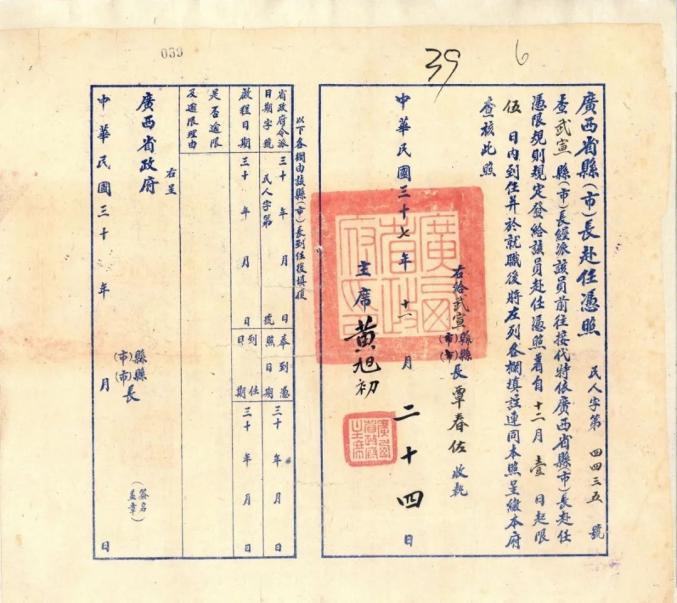 039
39
6
廣西省縣(市)長赴任憑照 民人字第 四四三五 號
查武宣縣(市)長經派該員前往接代特依廣西省縣(市)長赴任
憑限規則規定發給該員赴任憑照著自十二月壹日起限
伍日內到任并於就職後將左列各欄填註連同本照呈繳本府
查核此照
右給武宣縣(市)縣(市)長覃春佐收執
主席黃旭初
中華民國三十七年十一月二十四日
廣西省政府印
以下各欄由該縣(市)長到任後填復
省政府令派日期字號 三十 年 月 日 民人字第 號 奉到憑照日期 三十 年 月 日
啟程日期 三十 年 月 日 到任日期 三十 年 月 日
是否逾限及逾限理由
右呈
廣西省政府
縣(市)縣(市)長 (簽名蓋章)
中華民國三十 年 月 日